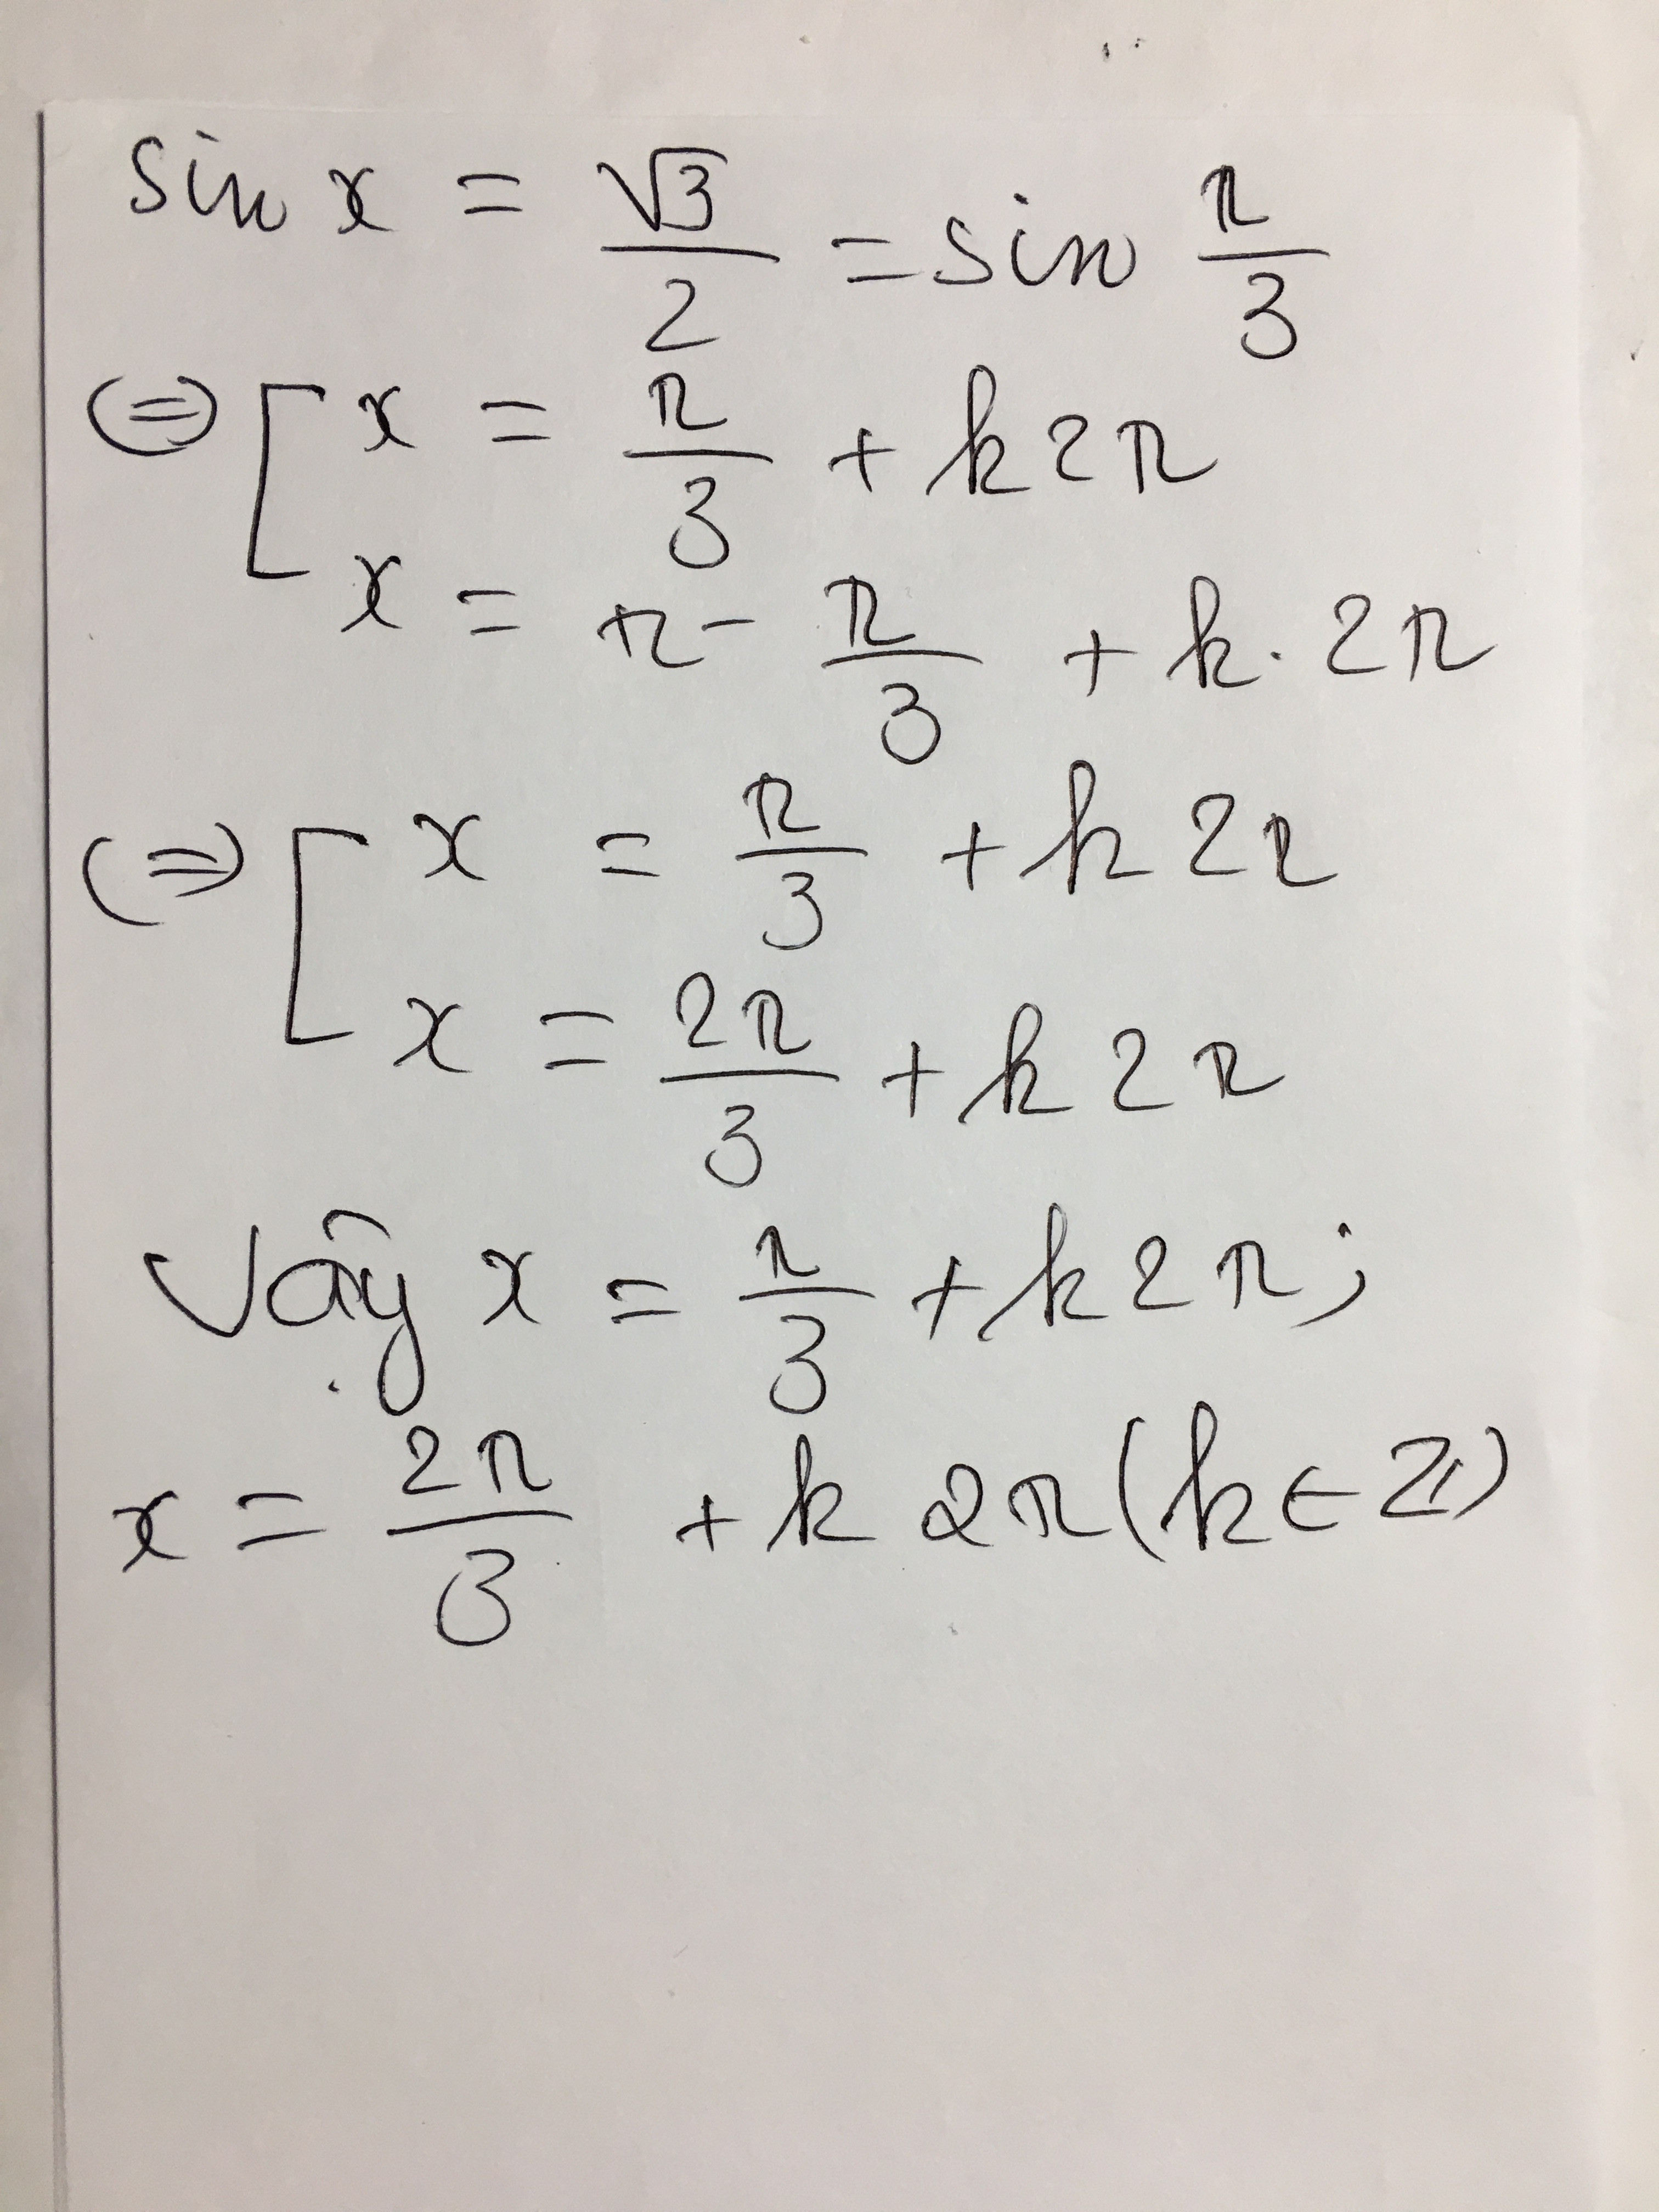 sin x = √3/2 = sin π/3
(=) [ x = π/3 + k2π
x = π - π/3 + k. 2π
(=) [ x = π/3 + k2π
x = 2π/3 + k2π
Vậy x = π/3 + k2π;
x = 2π/3 + k 2π (k ∈ Z)